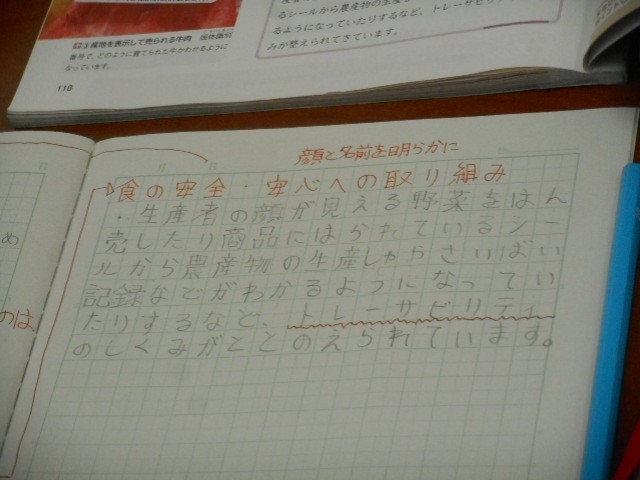 産地を表示して売られる牛肉
番号で、どのように育てられた牛かわかるように
なっています。
118
るシールから農産物の生産
るようになっていたりするなど、トレーサビリ
みが整えられてきています。
顔と名前を明らかに
食の安全・安心への取り組み
・生産者の顔が見える野菜をはん
売したり商品にはられているシー
ルから農産物の生産しゃやさいばい
記録などがわかるようになってい
たりするなど、トレーサビリティ
のしくみがととのえられています。
め
のは